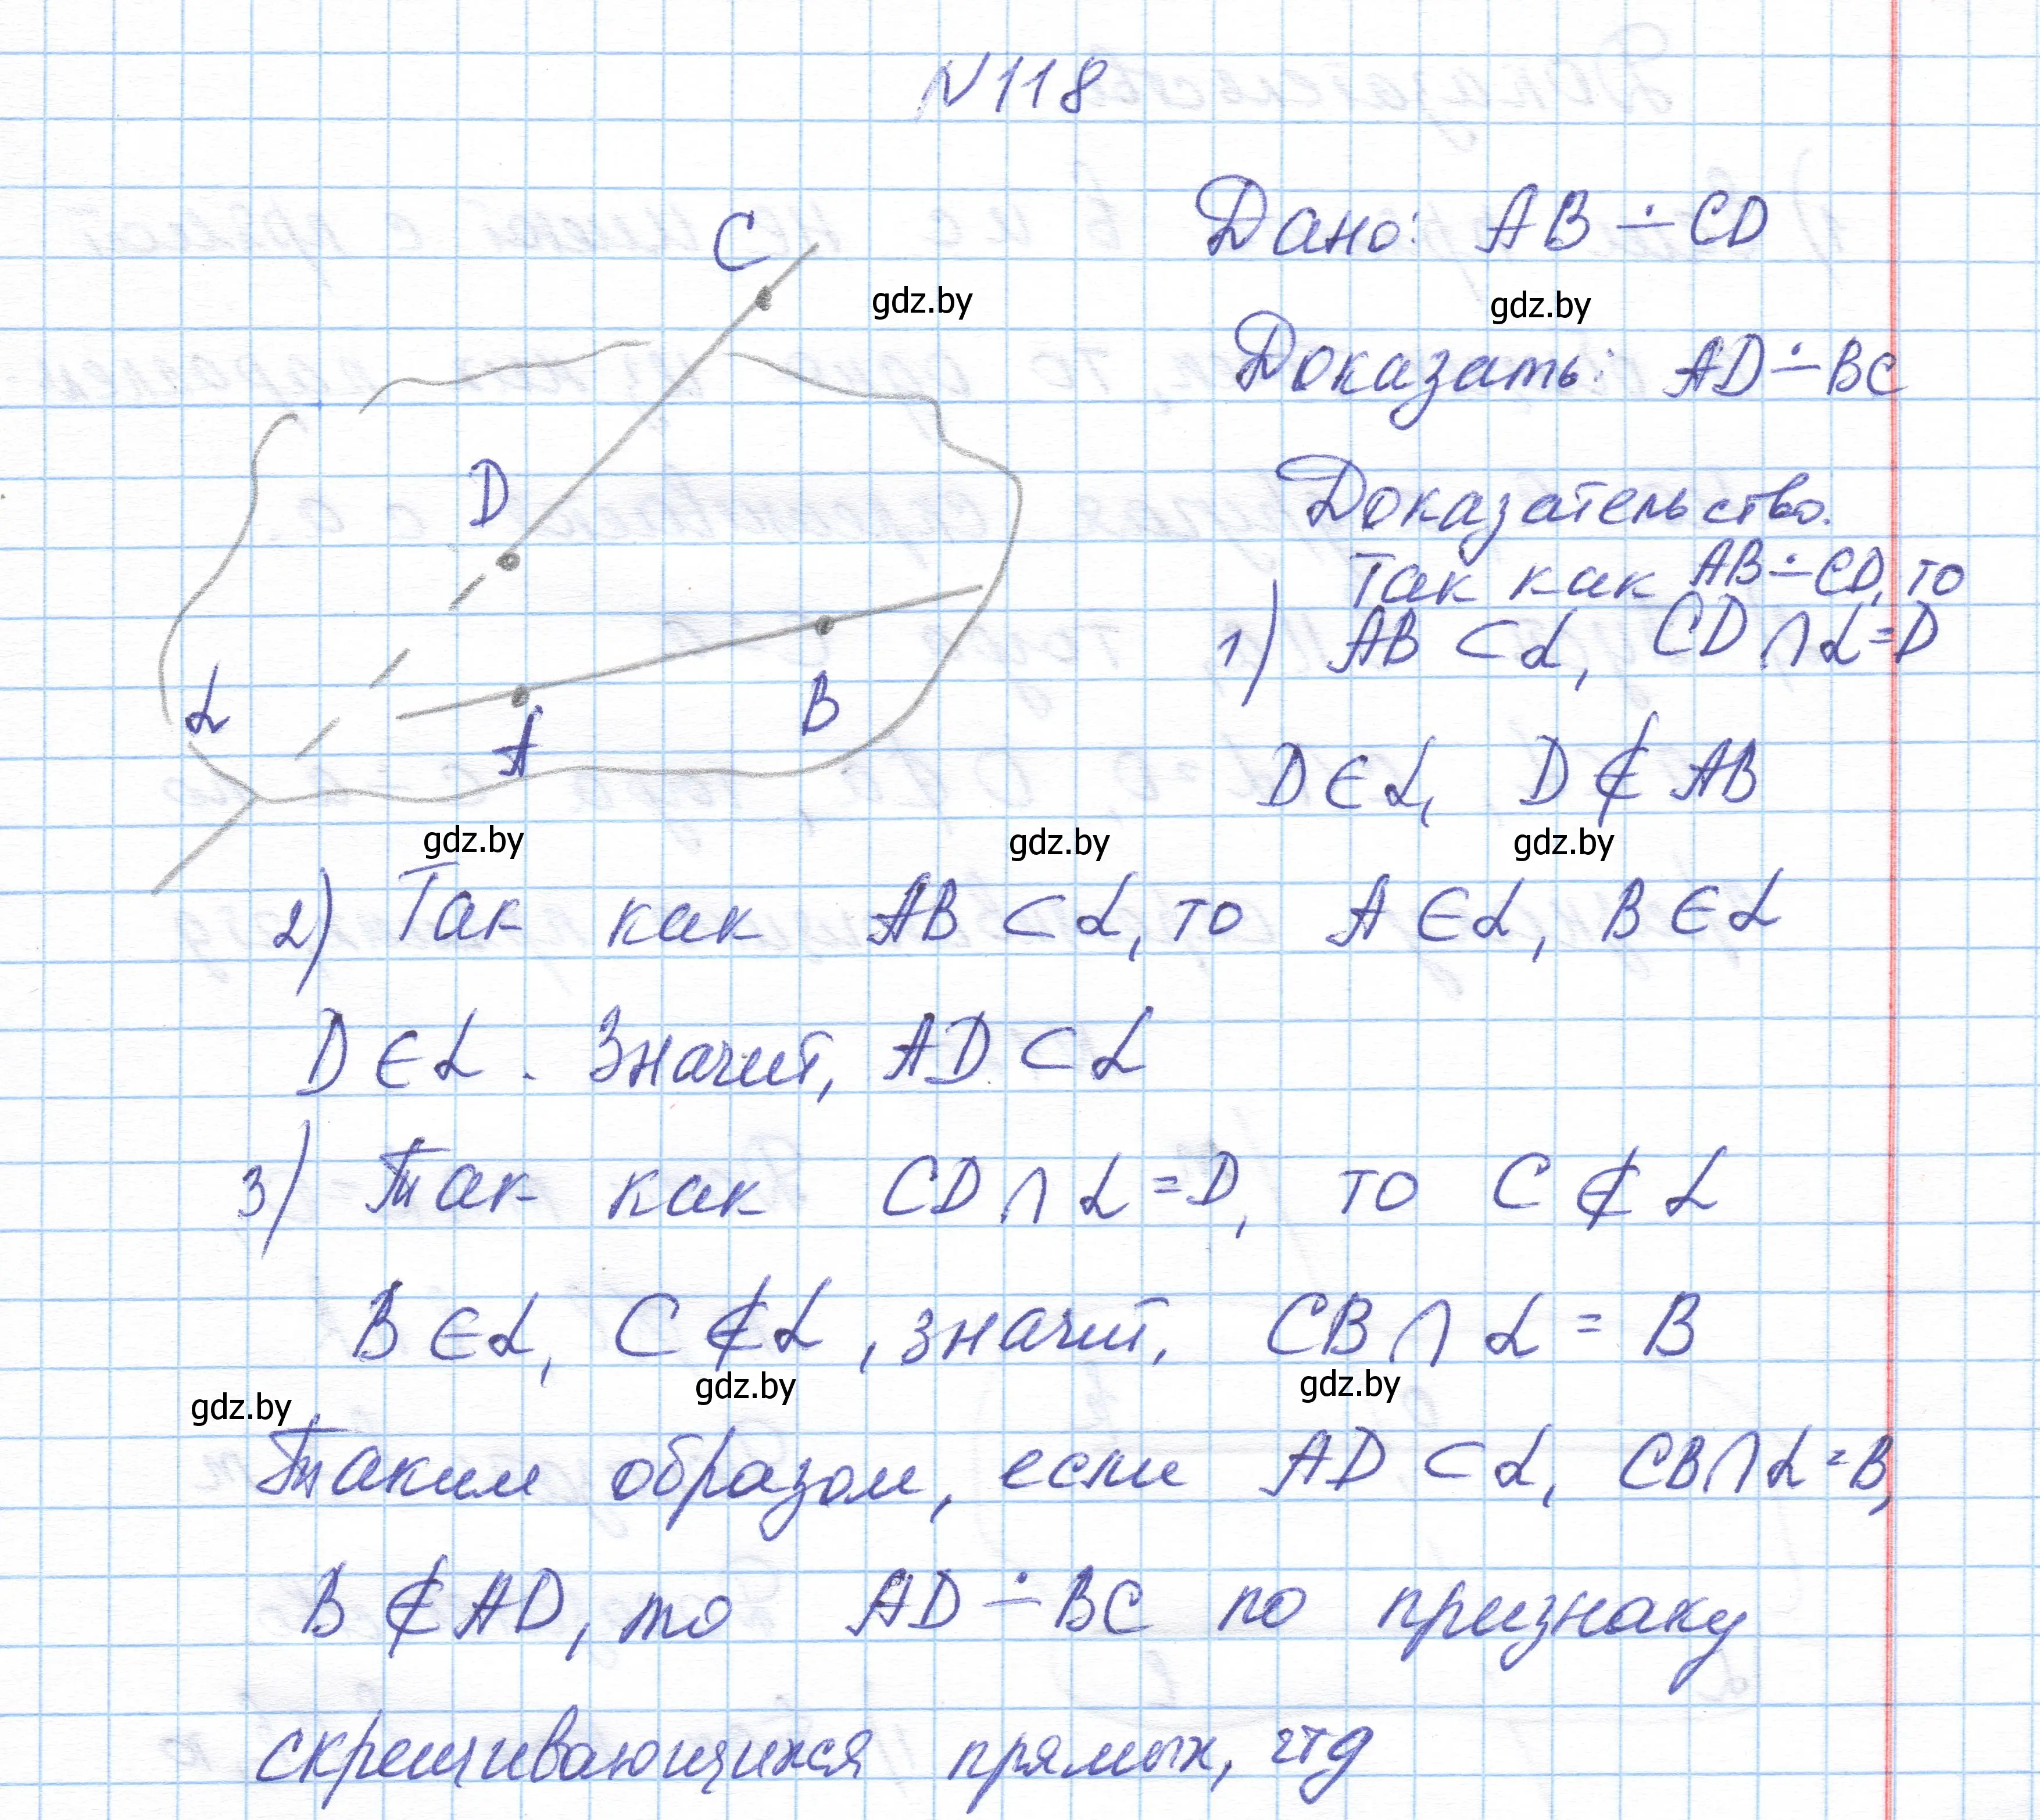 N118
C
Дано: AB ∸ CD
gdz.by
gdz.by
Доказать: AD ∸ BC
D
Доказательство.
Так как AB ∸ CD, то
1) AB ⊂ α, CD ∩ α = D
α
A
B
D ∈ α, D ∉ AB
gdz.by
gdz.by
gdz.by
2) Так как AB ⊂ α, то A ∈ α, B ∈ α
D ∈ α. Значит, AD ⊂ α
3) Так как CD ∩ α = D, то C ∉ α
B ∈ α, C ∉ α, значит, CB ∩ α = B
gdz.by
gdz.by
gdz.by
Таким образом, если AD ⊂ α, CB ∩ α = B,
B ∉ AD, то AD ∸ BC по признаку
скрещивающихся прямых, чтд